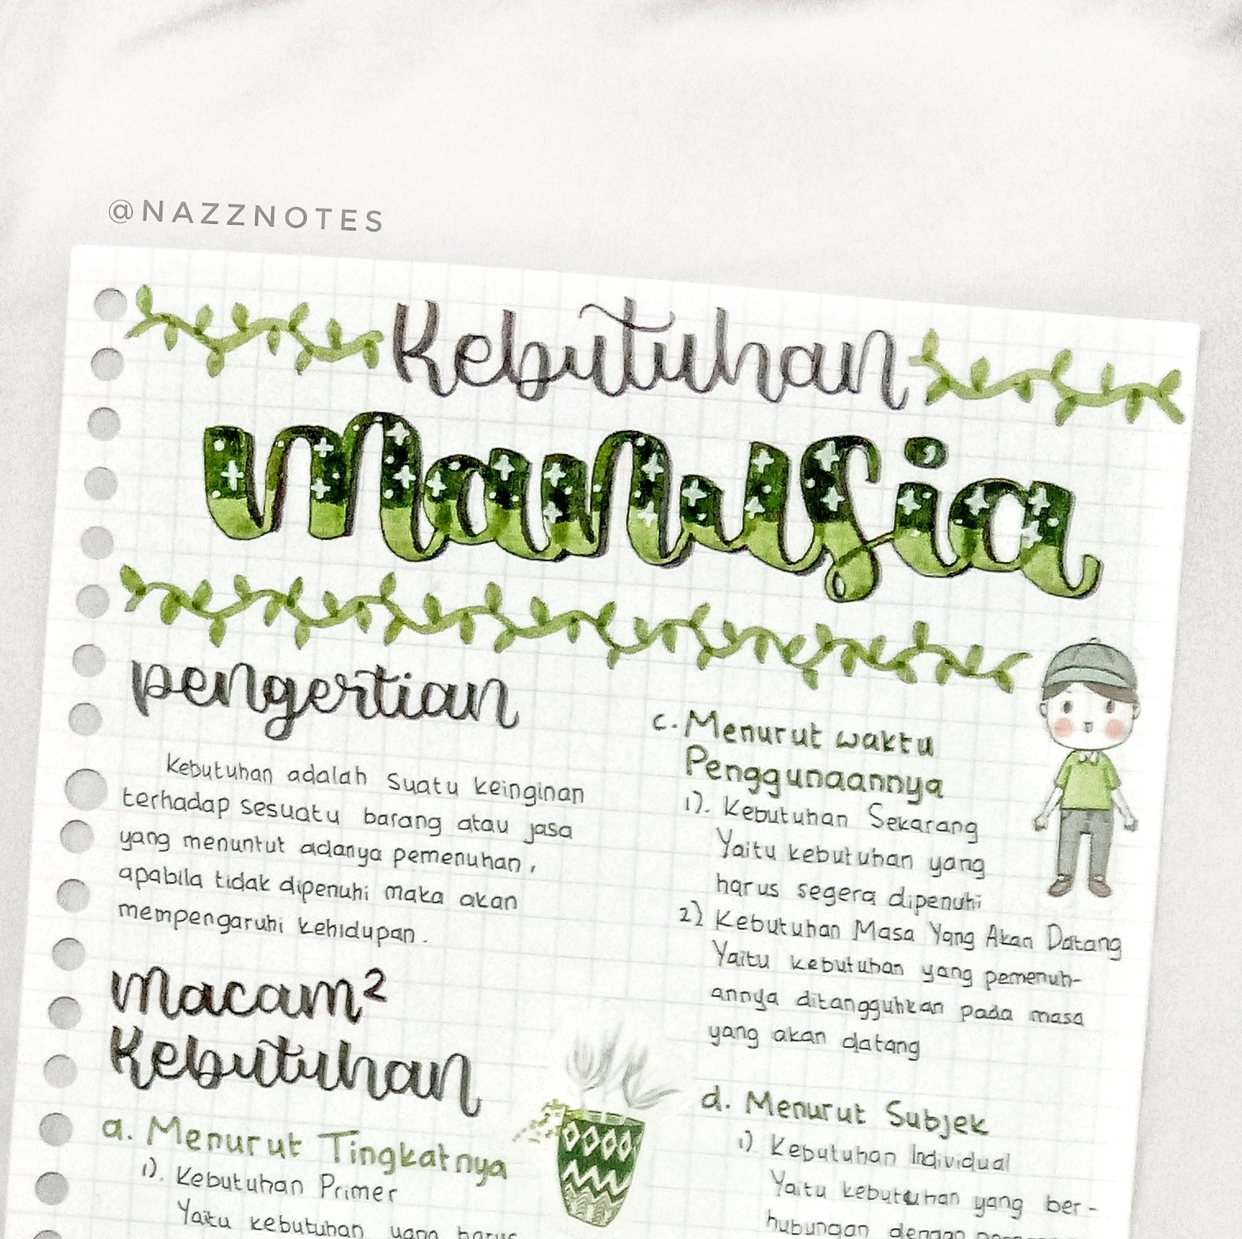 @NAZZNOTES
Kebutuhan
Manusia
pengertian
Kebutuhan adalah suatu keinginan
terhadap sesuatu barang atau jasa
yang menuntut adanya pemenuhan,
apabila tidak dipenuhi maka akan
mempengaruhi kehidupan.
Macam²
Kebutuhan
a. Menurut Tingkatnya
1). Kebutuhan Primer
Yaitu kebutuhan yang harus
c. Menurut waktu
Penggunaannya
1). Kebutuhan Sekarang
Yaitu kebutuhan yang
harus segera dipenuhi
2) Kebutuhan Masa Yang Akan Datang
Yaitu kebutuhan yang pemenuh-
annya ditangguhkan pada masa
yang akan datang
d. Menurut Subjek
1) Kebutuhan Individual
Yaitu kebutuhan yang ber-
hubungan dengan